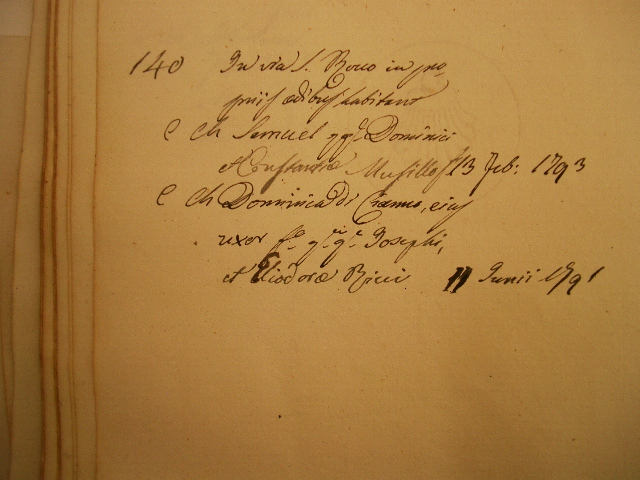 140 In via S. Rocco in pro-
prijs ædibus habitant
C Ch Samuel qq.m Dominici
et Constantiæ Musillo 13 Feb: 1793
C Ch Dominica di Cosmo, ejus
uxor f.a q.m q.m Josephi,
et Eliodoræ Ricci 11 Junii 1791